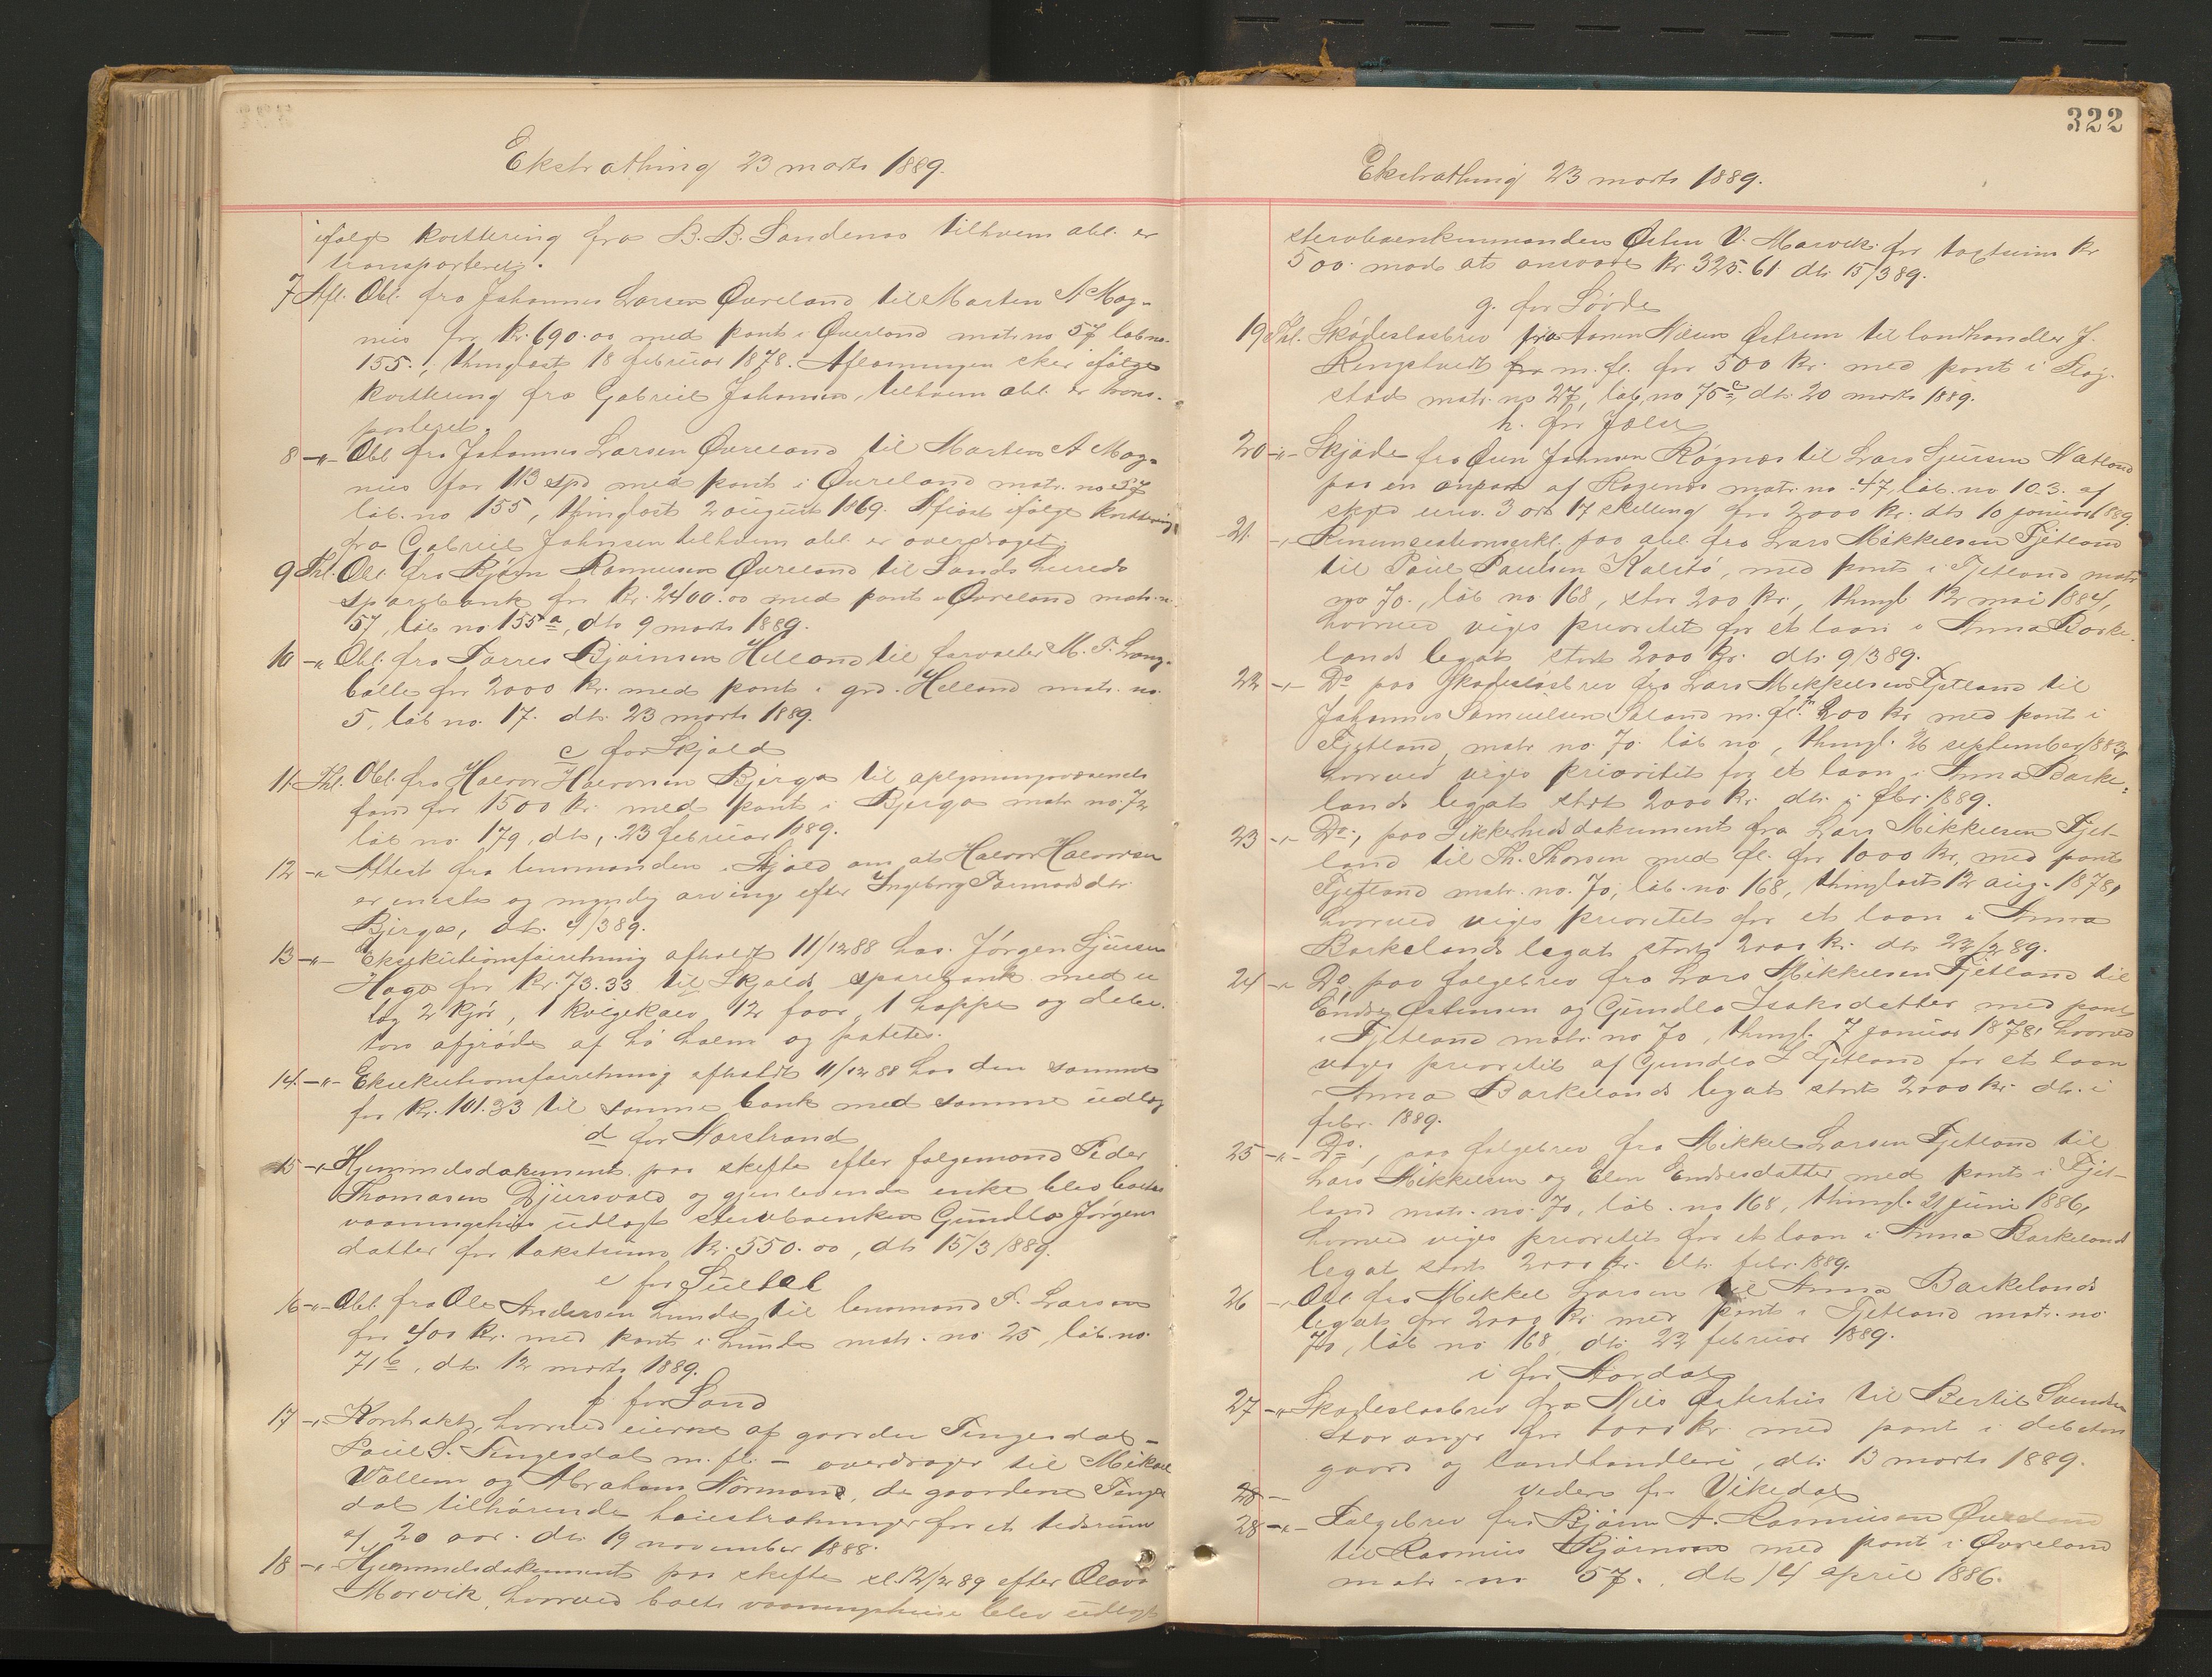 Ekstrathing 23 marts 1889.
ifølge kvittering fra B. B. Sandenes tilhvem obl. er
transporteret.
7 Afl. Obl. fra Johannes Larsen Øvreland til Marten A Mag-
nus for kr. 690.00 med pant i Øvreland matr. no 57 løb no.
155., thinglæst 18 februar 1878. Aflæsningen sker ifølge
kvittering fra Gabriel Johansen, tilhvem obl. er trans-
porteret.
8 -"- Obl fra Johannes Larsen Øvreland til Marten A Mag-
nus for 113 spd med pant i Øvreland matr. no 57
løb. no 155, thinglæst 2 august 1869. Aflæst ifølge kvittering
fra Gabriel Johnsen tilhvem obl. er overdraget.
9 Thl. Obl. fra Bjørn Rasmussen Øvreland til Sands herreds
sparebank for kr. 2400.00 med pant i Øvreland matr. n.
57, løb no 155 a, dt. 9 marts 1889.
10 -"- Obl. fra Torres Bjørnsen Helland til forvalter M. T. Lang-
balle for 2000 kr. med pant i grd. Helland matr. no.
5, løb no. 17. dt. 23 marts 1889.
c for Skjold
11. Thl. Obl. fra Halvor Halvorsen Bjerga til oplysningsvæsenets
fond for 1500 kr. med pant i Bjerga matr no. 72
løb no. 179, dt. 23 februar 1889.
12 -"- Attest fra lensmanden i Skjold om at Halvor Halvorsen
er eneste og myndig arving efter Ingeborg datter
Bjerga, dt. 4/3 89.
13 -"- Eksekutionsforretning afholdt 11/12 88 hos Jørgen Sjursen
Haga for kr. 73.33 til Skjolds sparebank med u
læg 2 kjør, 1 kvigekalv 12 faar, 1 hoppe og debi-
tors afgrøde af hø halm og poteter.
14. -"- Eksekutionsforretning afholdt 11/12 88 hos den samme
for kr. 101.33 til samme bank med samme udlæg
d for Nærstrand
15 -"- Hjemmelsdokument paa skifte efter folgemand Peder
Thomasen og gjenlevende enke blev boets
vaaningshus udlagt sterboenken Gundla Jørgens
datter for takstsum kr. 550.00, dt. 15/3 1889.
e for Suldal
16 -"- Obl. fra Ole Andersen Lunde til lensmand T. Larsen
for 400 kr. med pant i Lunde matr. no 25, løb. no.
71 b, dt. 12 marts 1889.
f. for Sand
17 -"- Kontrakt, hvorved eierne af gaarden Tengesdal -
Poul S. Tengesdal m. fl. - overdrager til Mikal
Vallem og Abraham Normand, de gaardene Tenges
dal tilhørende for et tidsrum
af 20 aar. dt. 19 november 1888.
18 -"- Hjemmelsdokument paa skifte sl. 12/2 89 efter Olava
Marvik, hvorved boets vaaningshuse blev udlagt
322
Ekstrathing 23 marts 1889.
sterboenkemanden Østen V. Marvik for takstsum kr
500. mod at ansvare kr. 325.61. dt. 15/3 89.
g. for Søvde
19 Thl. Skadesløsbrev fra Aamun Nilsen Østrem til landhandler J.
Ringstvedt m. fl. for 500 kr. med pant i Røg-
stad matr. no 27, løb. no 75 c, dt. 20 marts 1889.
h. for Jelse
20 -"- Skjøde fra Johnsen Røgnes til Lars Sjursen Natland
paa en anpart af Røgenes matr. no. 47, løb. no 103. af
skyld 3 ort 17 skilling for 2000 kr. dt. 10 januar 1889.
21. -"- Renunciationserkl. paa obl. fra Lars Mikkelsen Fjetland
til Poul Paulsen Kalstø, med pant i Fjetland matr
no 70., løb no 168, stor 200 kr, thingl. 12 mai 1884,
hvorved viges prioritet for et laan i Anna Barke-
lands legat stort 2000 kr. dt. 9/3 89.
22 -"- Do paa skadesløsbrev fra Lars Mikkelsen Fjetland til
Johannes Samuelsen m. fl. for 200 kr. med pant i
Fjetland matr no. 70. løb no , thingl. 26 september 1883,
hvorved viges prioritet for et laan i Anna Barke-
lands legat stort 2000 kr. dt. i fbr. 1889.
23 -"- Do., paa sikkerhedsdokument fra Lars Mikkelsen Fjet-
land til Th. Thorsen med fl. for 1000 kr, med pant
Fjetland matr. no. 70, løb. no 168, thinglæst 12 aug. 1878,
hvorved viges prioritet for et laan i Anna
Barkelands legat stort 2000 kr. dt 22/2 89.
24 -"- Do. paa folgebrev fra Lars Mikkelsen Fjetland til
Endre Østensen og Gundla Isaksdatter med pant
i Fjetland matr. no 70, thingl. 7 januar 1878, hvorved
viges prioritet af Gundla I Fjetland for et laan
i Anna Barkelands legat stort 2000 kr. dt. i
febr. 1889.
25 -"- Do., paa folgebrev fra Mikkel Larsen Fjetland til
Lars Mikkelsen og Elen Endresdatter med pant i Fjet-
land matr. no. 70, løb. no 168, thingl. 21 juni 1886,
hvorved viges prioritet for et laan i Anna Barkelands
legat stort 2000 kr. dt. febr. 1889.
26 -"- Obl. fra Mikkel Larsen til Anna Barkelands
legat for 2000 kr. med pant i Fjetland matr. no.
70, løb no 168. dt. 22 februar 1889.
i for Aardal
27 -"- Skadesløsbrev fra Nils Østerhus til Bertil Svendsen
Stavanger for 1000 kr. med pant i debitors
gaard og landhandleri, dt. 13 marts 1889.
28 - videre for Vikedal
28 -"- Folgebrev fra Bjørn A. Rasmussen Øvreland
til Rasmus Bjørnsen med pant i Øvreland
matr. no 57. dt. 14 april 1886.